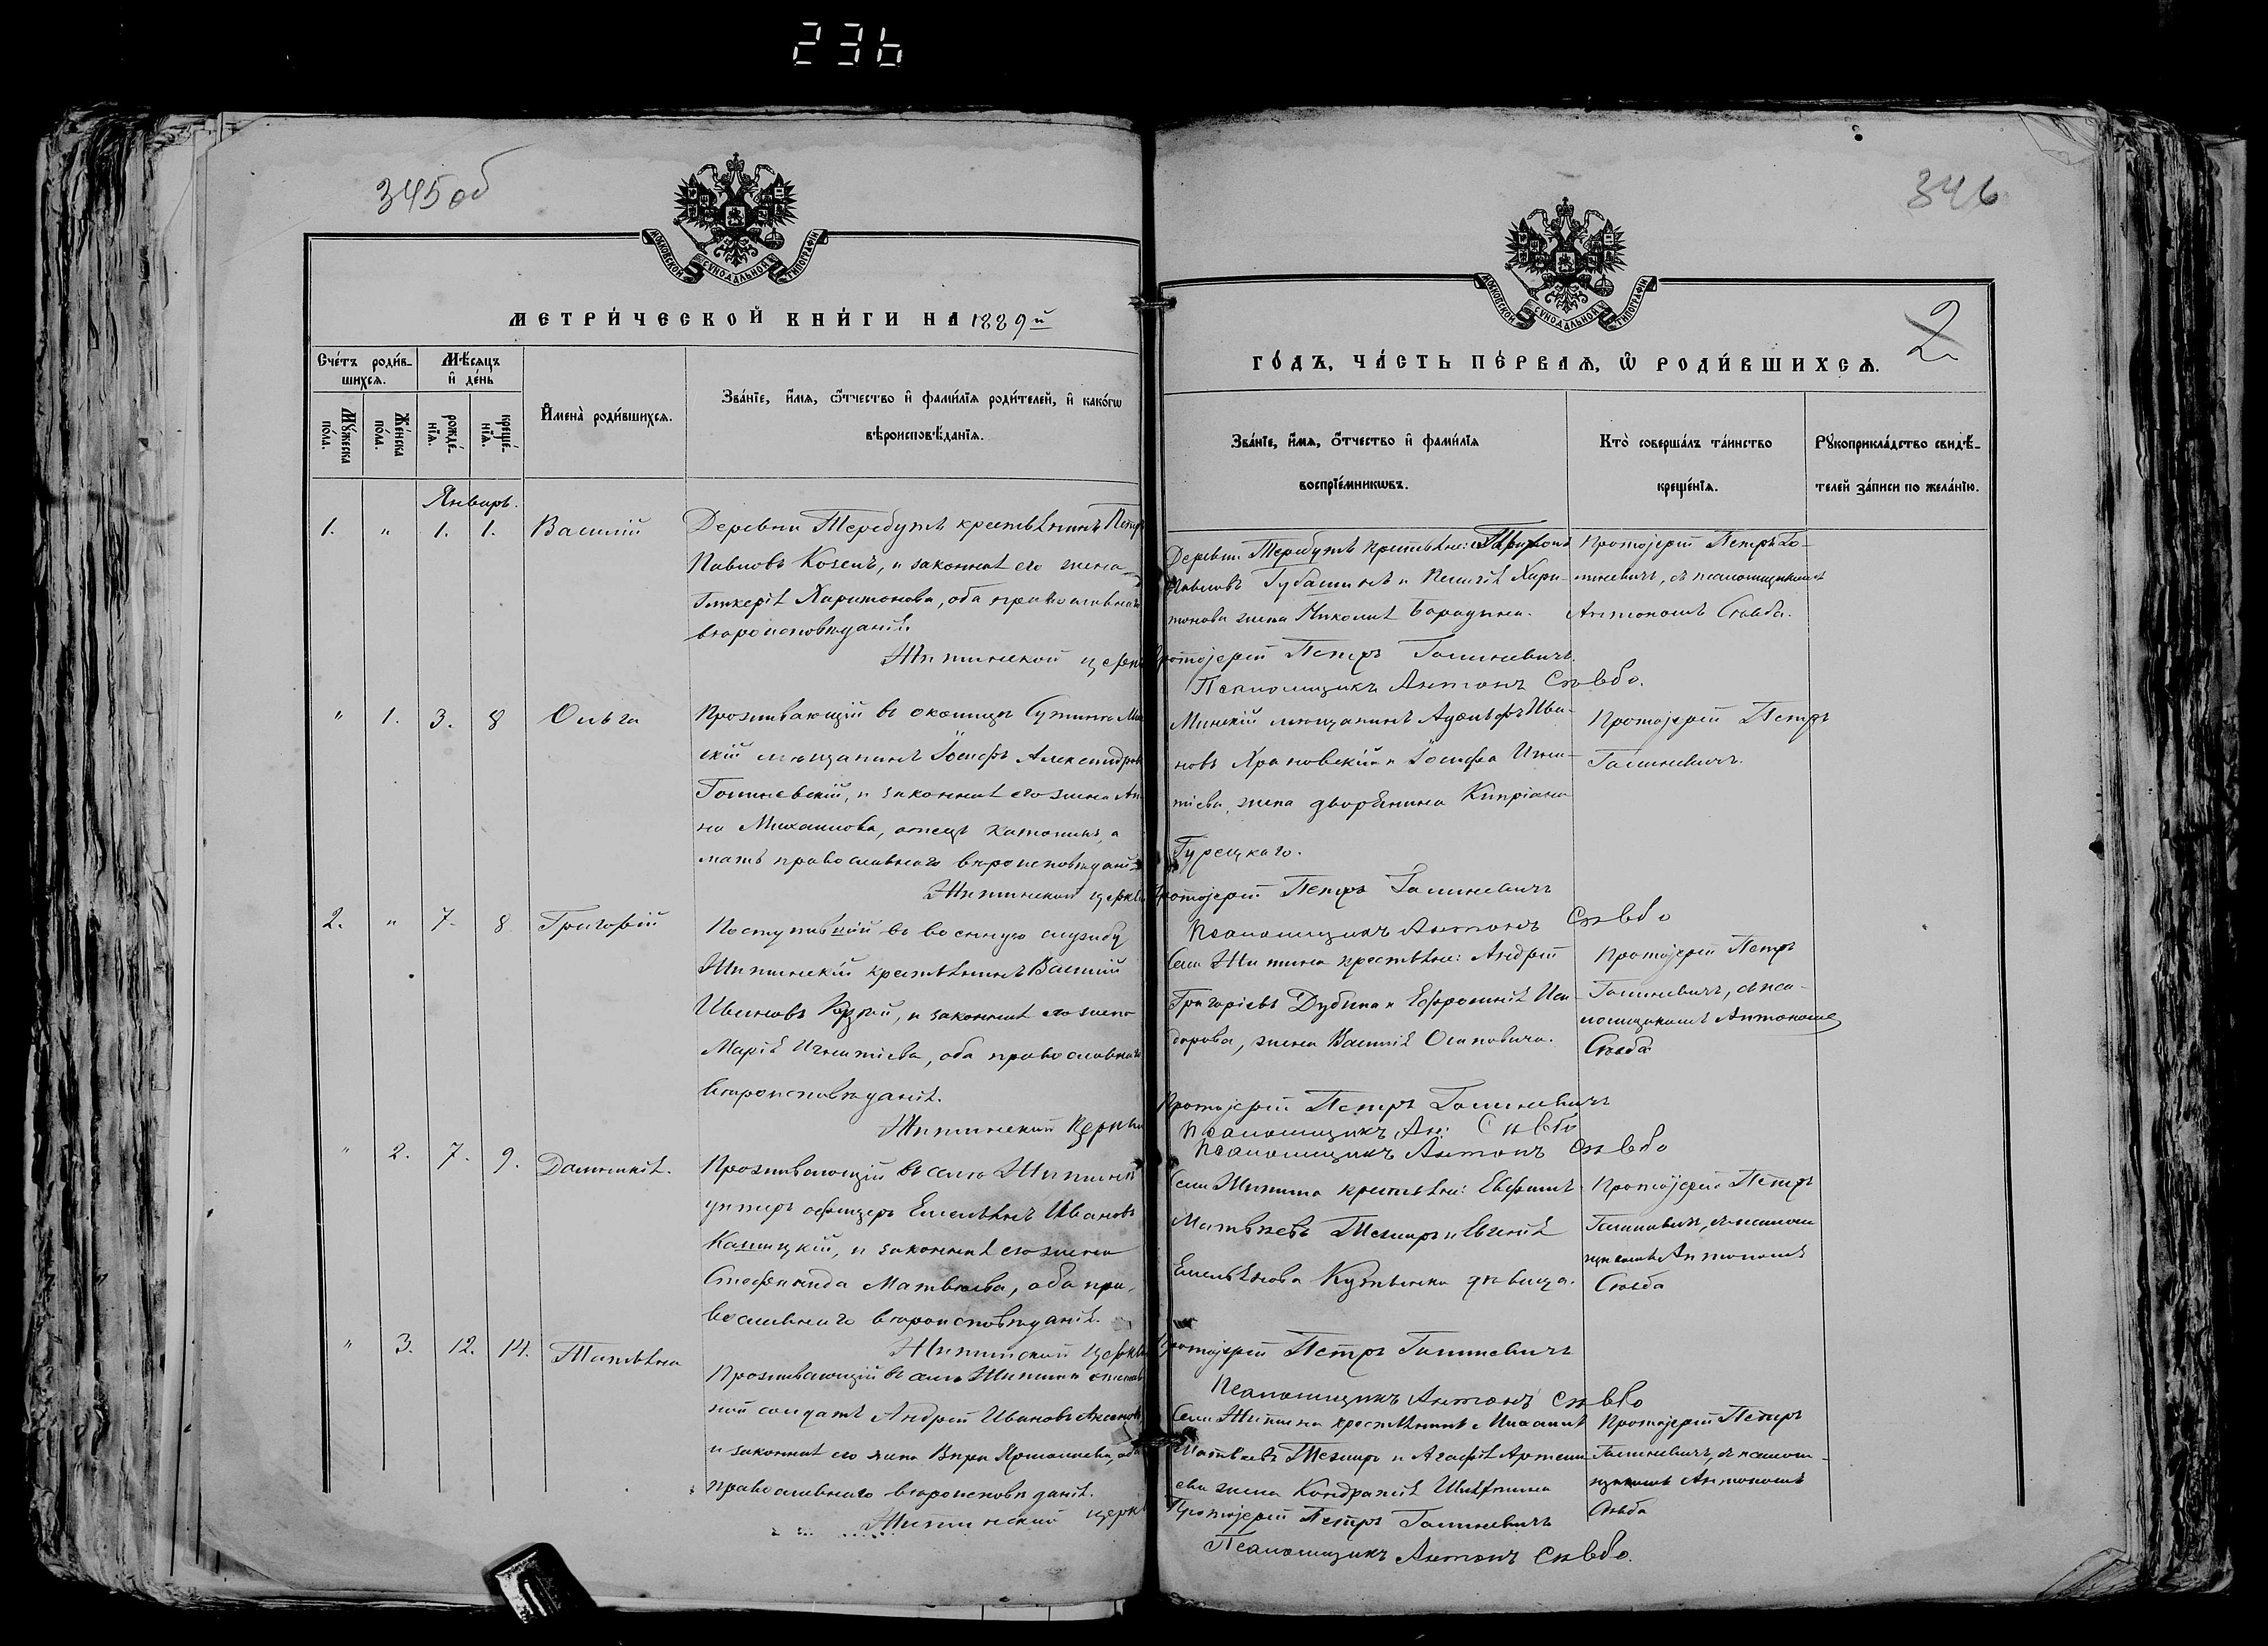 236
345 об
МОСКОВСКОЙ СѴНОДАЛЬНОЙ ТИПОГРАФІИ
МЕТРИ́ЧЕСКОЙ КНИ́ГИ НА 1889й
Сче́тъ роди́в-
шихсѧ.
Мѣ́сѧцъ
и҆ де́нь
Мꙋ́жеска
по́ла.
Же́нска
по́ла.
рожде́-
нїѧ.
креще́-
нїѧ.
И҆мена̀ роди́вшихсѧ.
Зва́нїе, и҆́мѧ, ѻ҆́тчество и҆ фами́лїѧ роди́телей, и҆ како́гѡ
вѣроисповѣ́данїѧ.
Январь.
1. " 1. 1. Василій
Деревни Теребутъ крестьянинъ Петръ
Павловъ Козелъ, и законная его жена
Гликерія Харитонова, оба православнаго
вѣроисповѣданія.
Житинской церкви
" 1. 3. 8 Ольга
Проживающій въ околицѣ Сутинѣ Мин
скій мѣщанинъ Іосифъ Александровъ
Голиневскій, и законная его жена Ан
на Михаилова, отецъ католикъ, а
мать православнаго вѣроисповѣданія
Житинской церкви
2. " 7. 8 Григорій
Поступившій въ военную службу
Житинскій крестьянинъ Василій
Ивановъ, и законная его жена
Марія Игнатіева, оба православнаго
вѣроисповѣданія.
Житинской церкви
" 2. 7. 9. Домникія.
Проживающій въ селѣ Житинѣ
унтеръ офицеръ Емельянъ Ивановъ
Калицкій, и законная его жена
Стефанида Матвѣева, оба пра-
вославнаго вѣроисповѣданія.
Житинской церкви
" 3. 12. 14. Татьяна
Проживающій въ селѣ Житинѣ
ной солдатъ Андрей Ивановъ
и законная его жена Вѣра, оба
православнаго вѣроисповѣданія.
Житинской церкви
346
МОСКОВСКОЙ СѴНОДАЛЬНОЙ ТИПОГРАФІИ
2
ГО́ДЪ, ЧА́СТЬ ПЕ́РВАѦ, Ѡ҆ РОДИ́ВШИХСѦ.
Зва́нїе, и҆́мѧ, ѻ҆́тчество и҆ фами́лїѧ
воспрїе́мникѡвъ.
Кто̀ соверша́лъ та́инство
креще́нїѧ.
Рꙋкоприкла́дство свидѣ́-
телей за́писи по жела́нїю.
Деревни Теребутъ крестьяне:
Павловъ Губашинъ и Пелагія Хари-
тонова жена Николая Бородина.
Протоіерей Петръ Го-
линевичъ, съ псаломщикомъ
Антономъ Сѣвба.
Протоіерей Петръ Голиневичъ.
Псаломщикъ Антонъ Сѣвбо.
Минскій мѣщанинъ Адольфъ Ива-
новъ Храновскій и Іосифа Игна-
тіева, жена дворянина Кипріана
Турецкаго.
Протоіерей Петръ
Голиневичъ.
Протоіерей Петръ Голиневичъ
Псаломщикъ Антонъ Сѣвбо
Села Житина крестьяне: Андрей
Григоріевъ Дубина и Ефросинія Иси-
дорова, жена Василія Осиповича.
Протоіерей Петръ
Голиневичъ, съ пса-
ломщикомъ Антономъ
Сѣвба
Протоіерей Петръ Голиневичъ
Псаломщикъ Ан: Сѣвбо
Псаломщикъ Антонъ Сѣвбо
Села Житина крестьяне: Евфимъ
Матвѣевъ Тесларъ и Евгенія
Емельянова дѣвица.
Протоіерей Петръ
Голиневичъ, съ псалом
щикомъ Антономъ
Сѣвба
Протоіерей Петръ Голиневичъ
Псаломщикъ Антонъ Сѣвбо
Села Житина крестьянинъ Михаилъ
Матвѣевъ Тесларъ и Агафія Артеми
ева жена Кондратія
Протоіерей Петръ
Голиневичъ, съ псалом-
щикомъ Антономъ
Сѣвба
Протоіерей Петръ Голиневичъ
Псаломщикъ Антонъ Сѣвбо.